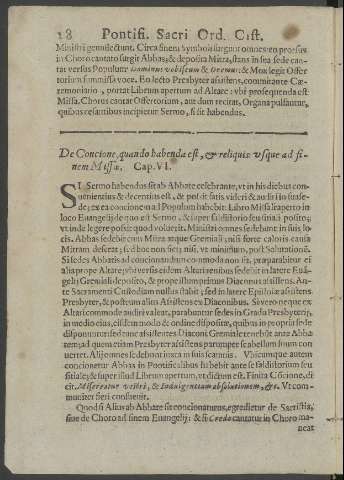 18 Pontifi. Sacri Ord. Cist.
Ministri genuflectunt. Circa finem Symboli surgunt omnes: eo prorsus
in Choro cantato surgit Abbas, & deposita Mitra, stans in sua sede can-
tat versus Populum Dominus vobiscum & Oremus: & Mox legit Offer
torium summissa voce. Eo lecto Presbyter assistens, comitante Cæ-
remoniario, portat Librum apertum ad Altare: vbi prosequenda est
Missa. Chorus cantat Offertorium, aut dum recitat, Organa pulsantur,
quibus cessantibus incipietur Sermo, si sit habendus.
De Concione, quando habenda est, & reliquis vsque ad fi-
nem Missæ. Cap. VI.
SI Sermo habendus sit ab Abbate celebrante, vt in his diebus con-
uenientius & decentius est, & potest satis videri & audiri in sua se-
de; ex ea concionem ad Populum habebit: Libro Missali aperto in
loco Euangelij de quo est Sermo, & super faldistorio seu situla posito;
vt inde legere possit quod voluerit. Ministri omnes sedebunt in suis lo-
cis. Abbas sedebit cum Mitra atque Gremiali; nisi forte caloris causa
Mitram deserat; sed hoc non fiet; nisi, vt minimum, post Salutationem.
Si sedes Abbatis ad concionandum commoda non sit, præparabitur ei
alia prope Altare; vbi versus eidem Altari renibus sedebit in latere Euā-
gelij Gremiali deposito, & prope illum primus Diaconus assistens. An-
te Sacramenti Custodiam nullus stabit; sed in latere Epistolæ assistens
Presbyter, & posteum alius Assistens ex Diaconibus. Si vero neque ex
Altari commode audiri valeat, parabuntur sedes in Gradu Presbyterij,
in medio eius, eisdem modo & ordine dispositæ, quibus in propria sede
disponuntur: sed tunc assistentes Diaconi Gremiale tenebūt ante Abba
tem; ad quem etiam Presbyter assistens parumper se absellum suum con
uertet. Alij omnes sedebunt iuxta in suis scamnis. Vbicumque autem
concionetur Abbas in Pontificalibus sibi habebit ante se faldistorium seu
sitiale; & super illud Librum apertum, vt dictum est. Finita Cōcione, di
cit. Misereatur vestri, & Indulgentiam absolutionem, &c. Vt com-
muniter fieri consueuit.
Quod si Alius ab Abbate sit concionaturus, egredietur de Sacristia,
siue de Choro ad finem Euangelij: & si Credo cantatur in Choro ma-
neat